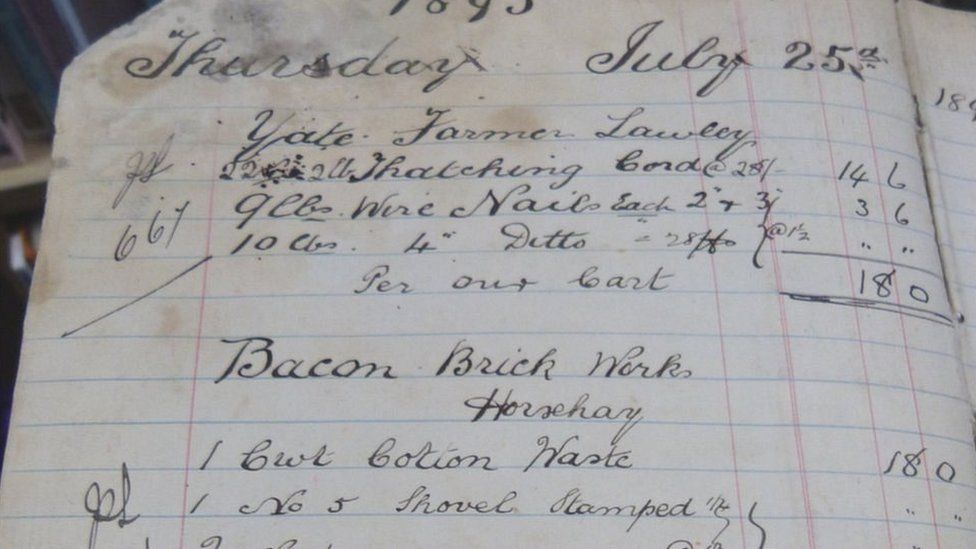 1895
Thursday July 25th
189
Yate Farmer Lawley
2lb Thatching Cord @ 28/- 14 6
9lbs Wire Nails Each 2" + 3" 3 6
667
10 lbs. 4" Ditto @ 1½ " "
Per our Cart 18 0
Bacon Brick Works
Horsehay
1 Cwt Cotton Waste 18 0
1 No 5 Shovel Stamped " "